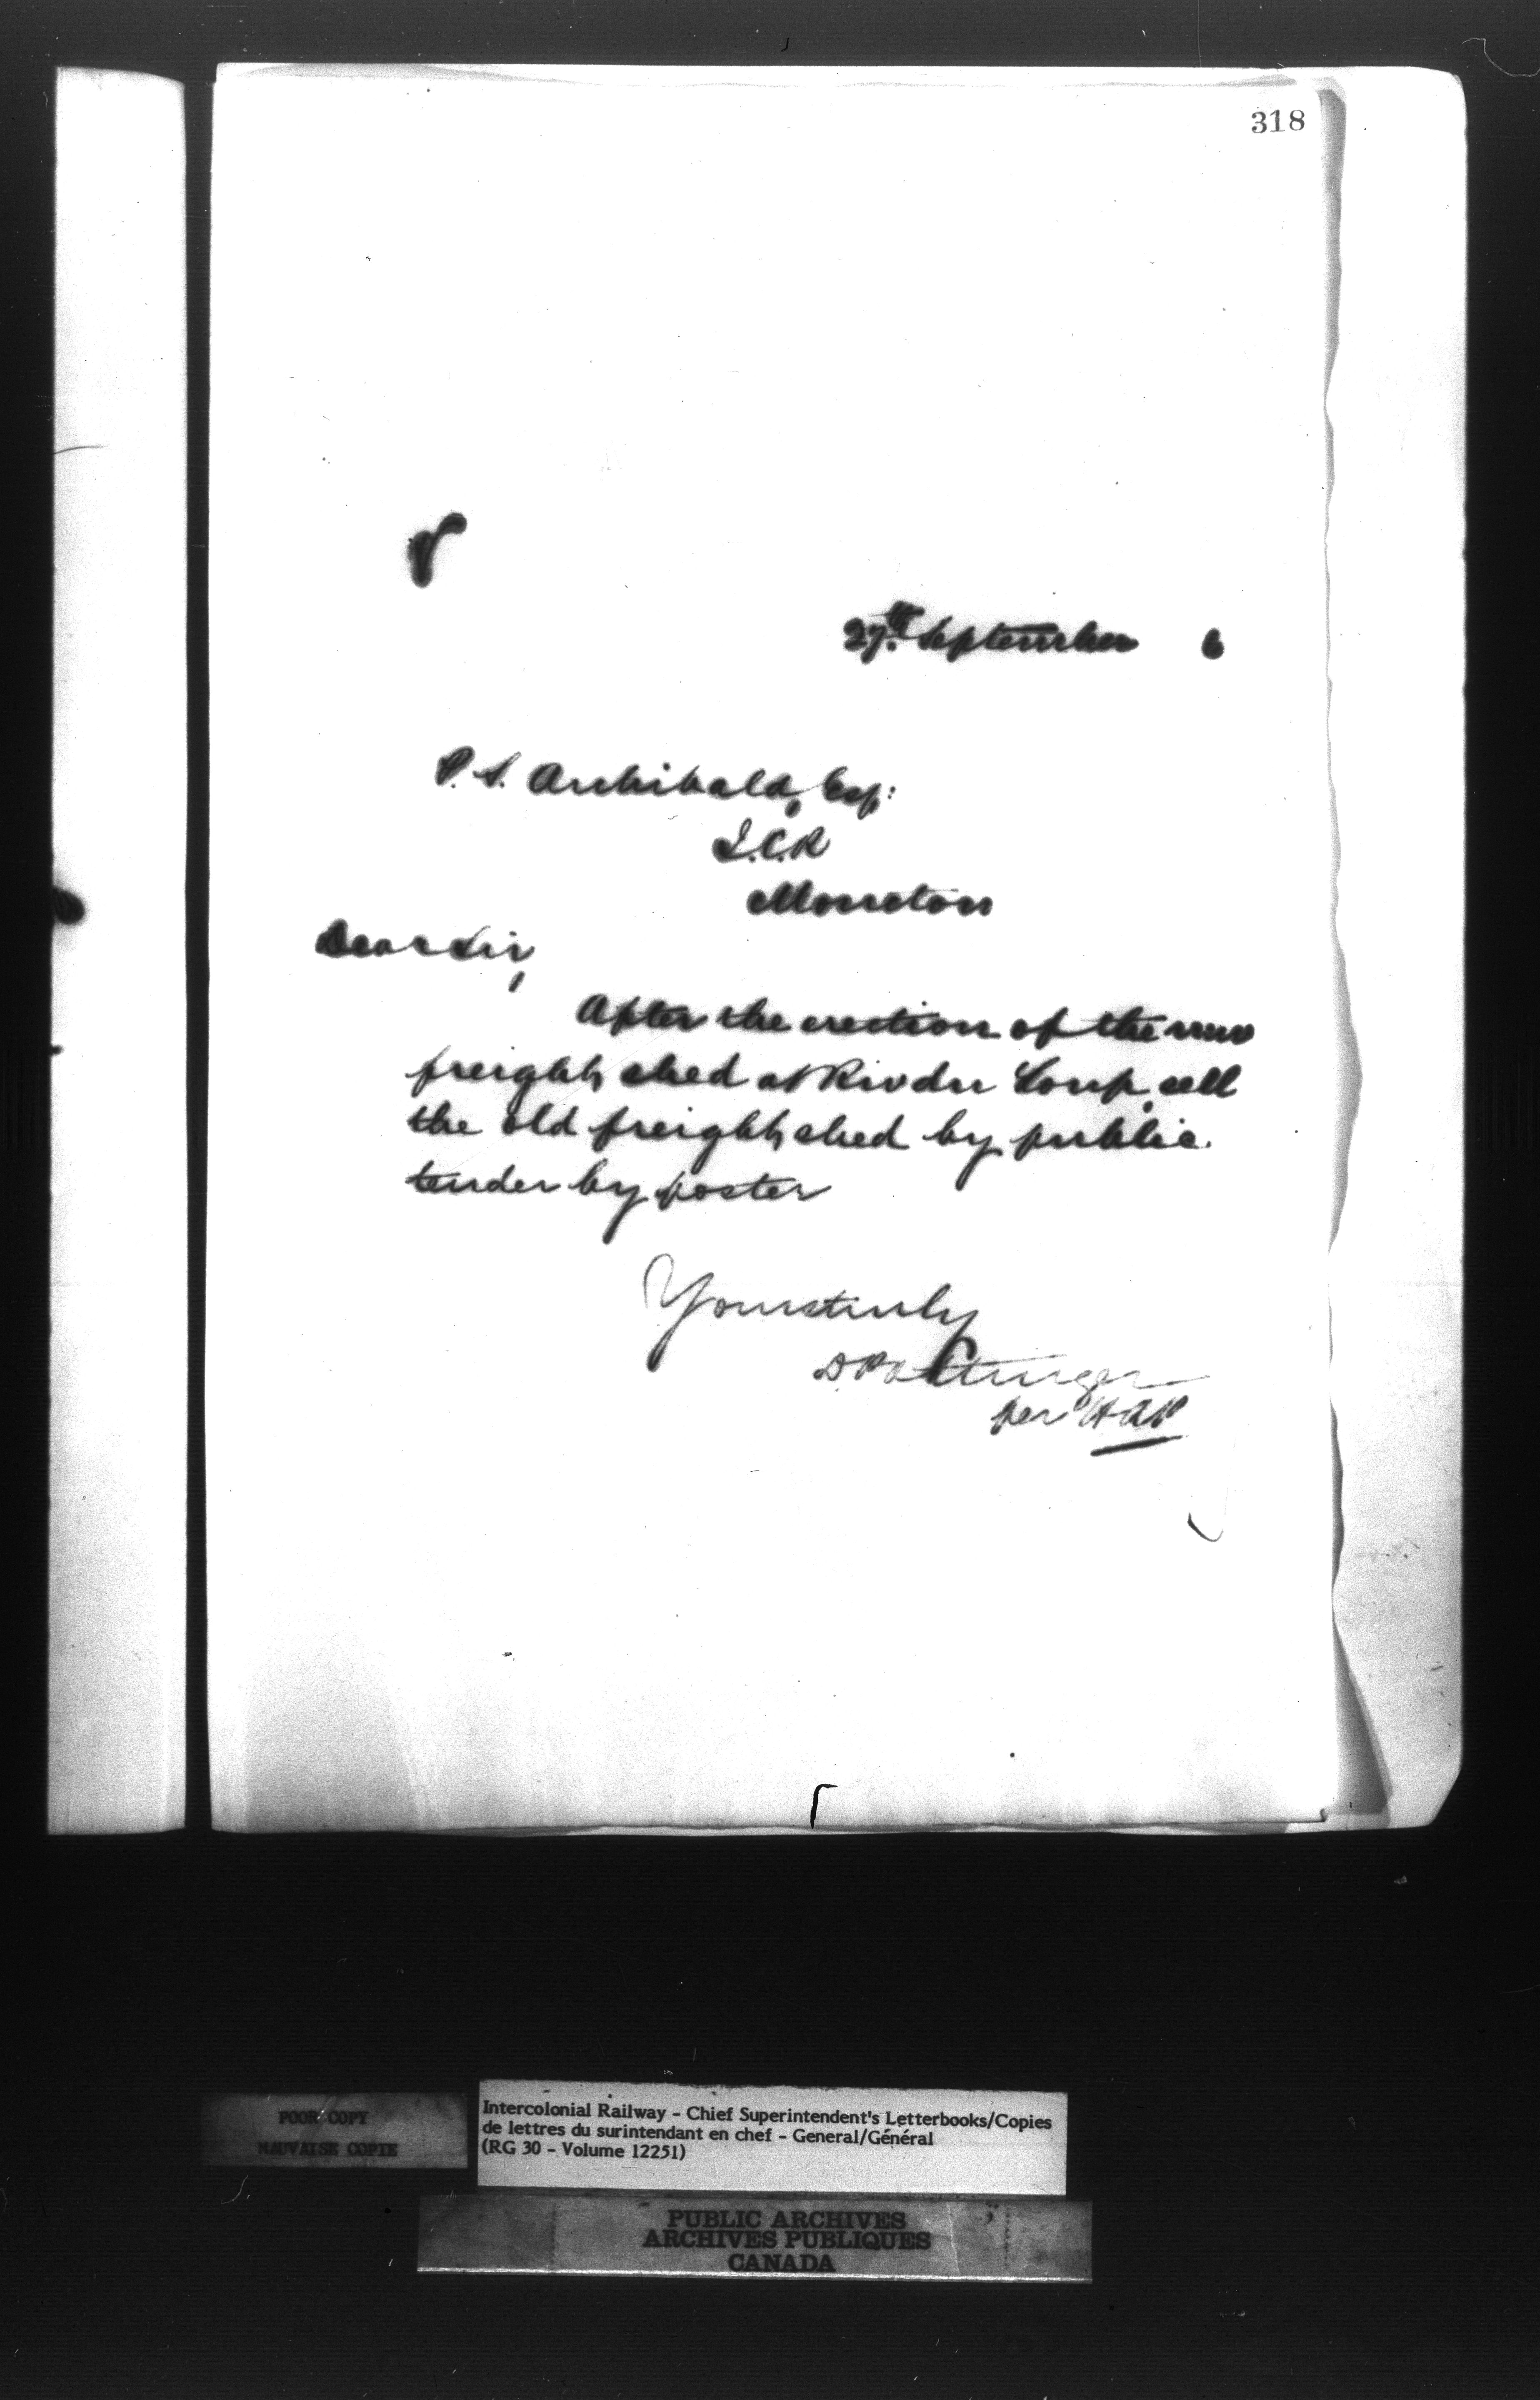 318
27th. September 6
P. S. Archibald, Esq:
I.C.R
Moncton
Dear Sir,
After the erection of the new
freight shed at Riv du Loup, sell
the old freight shed by public
tender by poster
Yours truly
D Pottinger
per HAP
POOR COPY
MAUVAISE COPIE
Intercolonial Railway - Chief Superintendent's Letterbooks/Copies
de lettres du surintendant en chef - General/Général
(RG 30 - Volume 12251)
PUBLIC ARCHIVES
ARCHIVES PUBLIQUES
CANADA